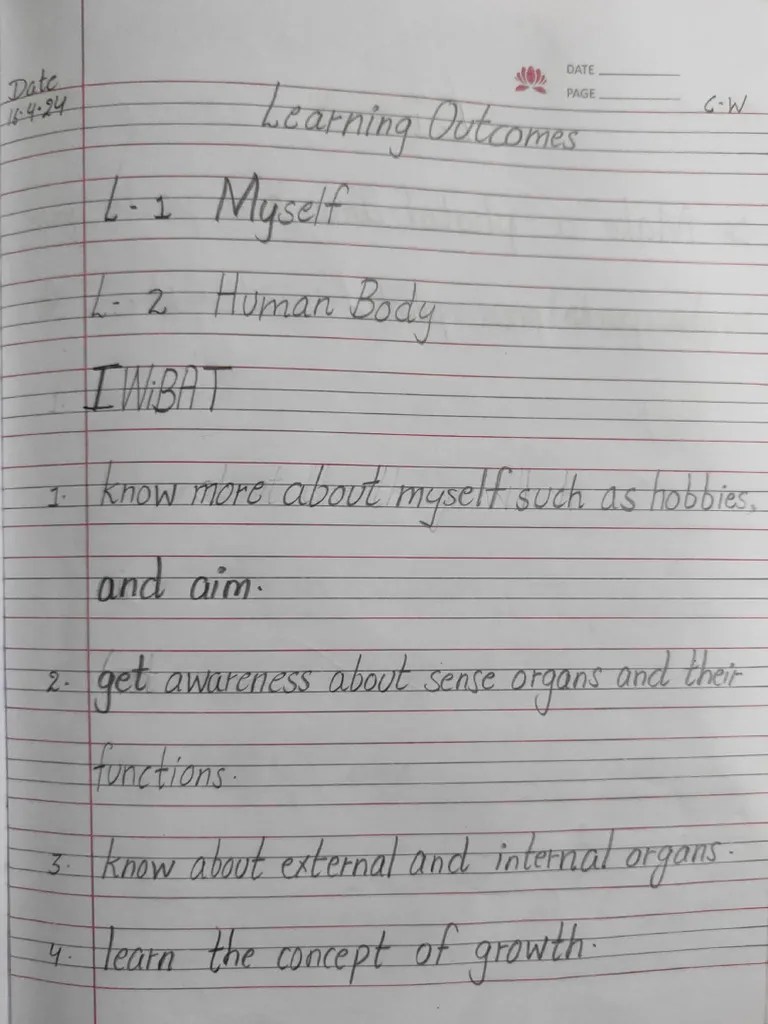 DATE
Date
PAGE
16.4.24
C-W
Learning Outcomes
L-1 Myself
L-2 Human Body
IWiBAT
1. know more about myself such as hobbies,
and aim.
2. get awareness about sense organs and their
functions.
3. know about external and internal organs.
4. learn the concept of growth.